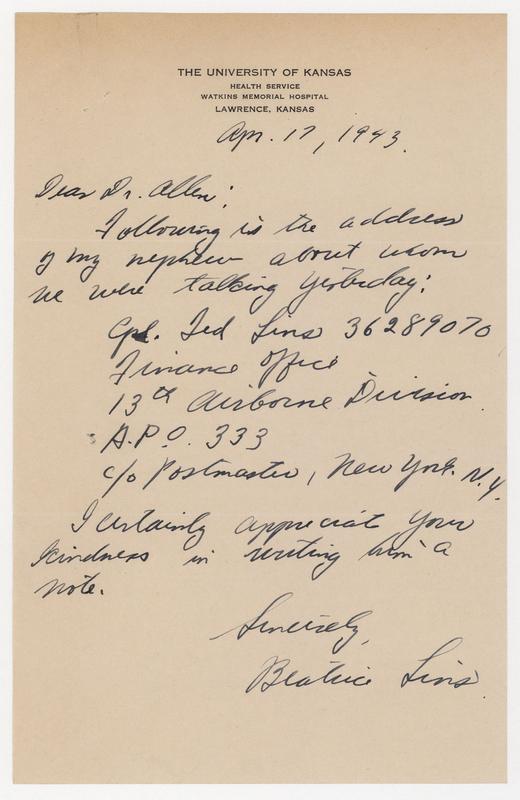 THE UNIVERSITY OF KANSAS
HEALTH SERVICE
WATKINS MEMORIAL HOSPITAL
LAWRENCE, KANSAS
Apr. 17, 1943.
Dear Dr. Allen:
Following is the address
of my nephew about whom
we were talking yesterday:
Cpl. Ted Lins 36289070
Finance Office
13th Airborne Division.
A.P.O. 333
c/o Postmaster, New York. N.Y.
I certainly appreciate your
kindness in writing him a
note.
Sincerely,
Beatrice Lins.